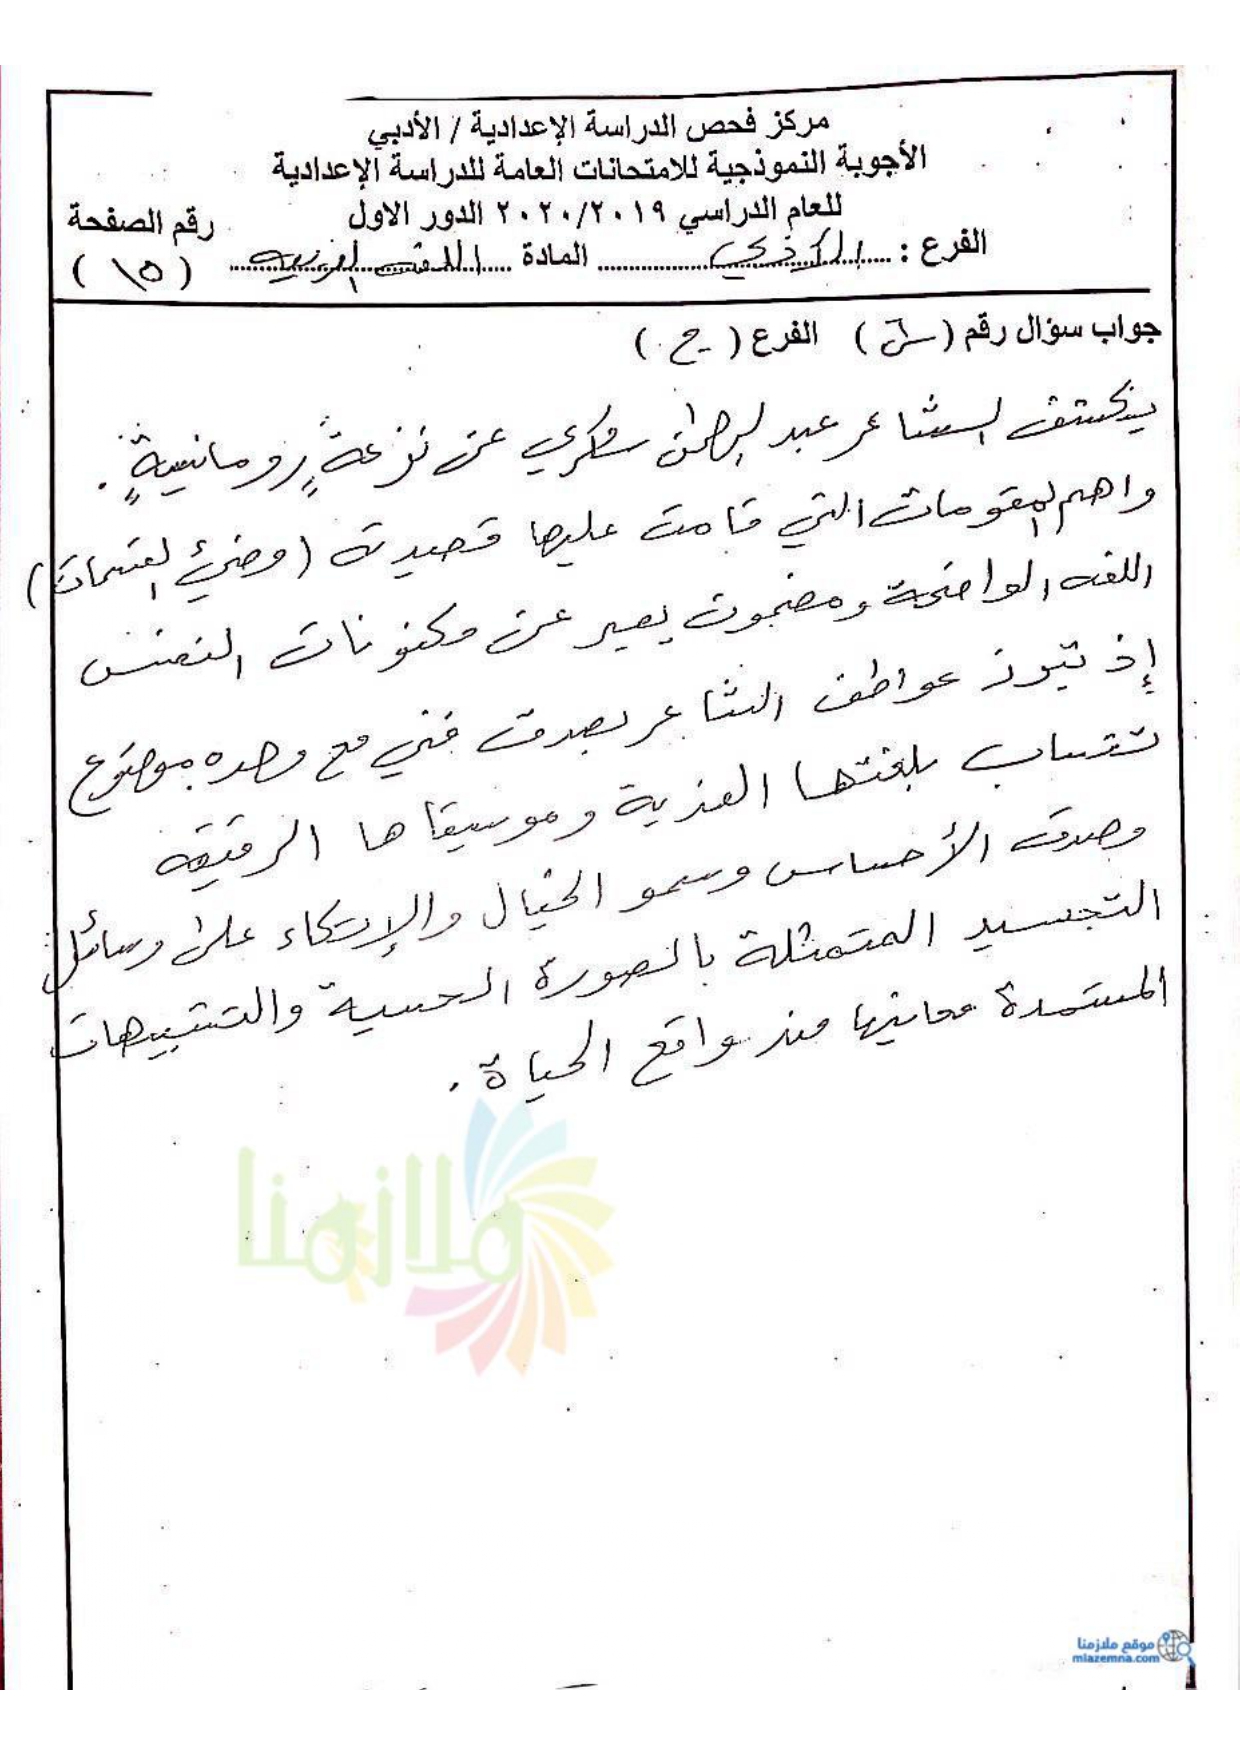 مركز فحص الدراسة الإعدادية / الأدبي
الأجوبة النموذجية للامتحانات العامة للدراسة الإعدادية
للعام الدراسي ٢٠٢٠/٢٠١٩ الدور الاول
رقم الصفحة
الفرع : الادبي المادة اللغة العربية ( ١٥ )
جواب سؤال رقم ( س٦ ) الفرع ( ج )
يكشف الشاعر عبد الرحمن شكري عن نزعةٍ رومانسيةٍ .
واهم المقومات التي قامت عليها قصيدة ( وضيءُ القسمات )
اللغة الواضحة ومضمون يعبر عن مكنونات النفس
إذ تبرز عواطف الشاعر بصدق فني مع وحدة موضوع
تنساب بلغتها العذبة وموسيقاها الرقيقة
وصدق الأحساس وسمو الخيال والإتكاء على وسائل
التجسيد المتمثلة بالصورة الحسية والتشبيهات
المستمدة معانيها من واقع الحياة .
ملازمنا
موقع ملازمنا
mlazemna.com